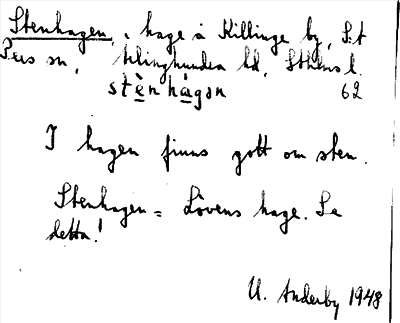 Stenhagen, hage å Killinge by, S:t
Pers sn, Ärlinghundra hd, Sthlms l.
stènhàgən 62
I hagen finns gott om sten.
Stenhagen = Lövens hage. Se
detta!
U. Anderby 1948